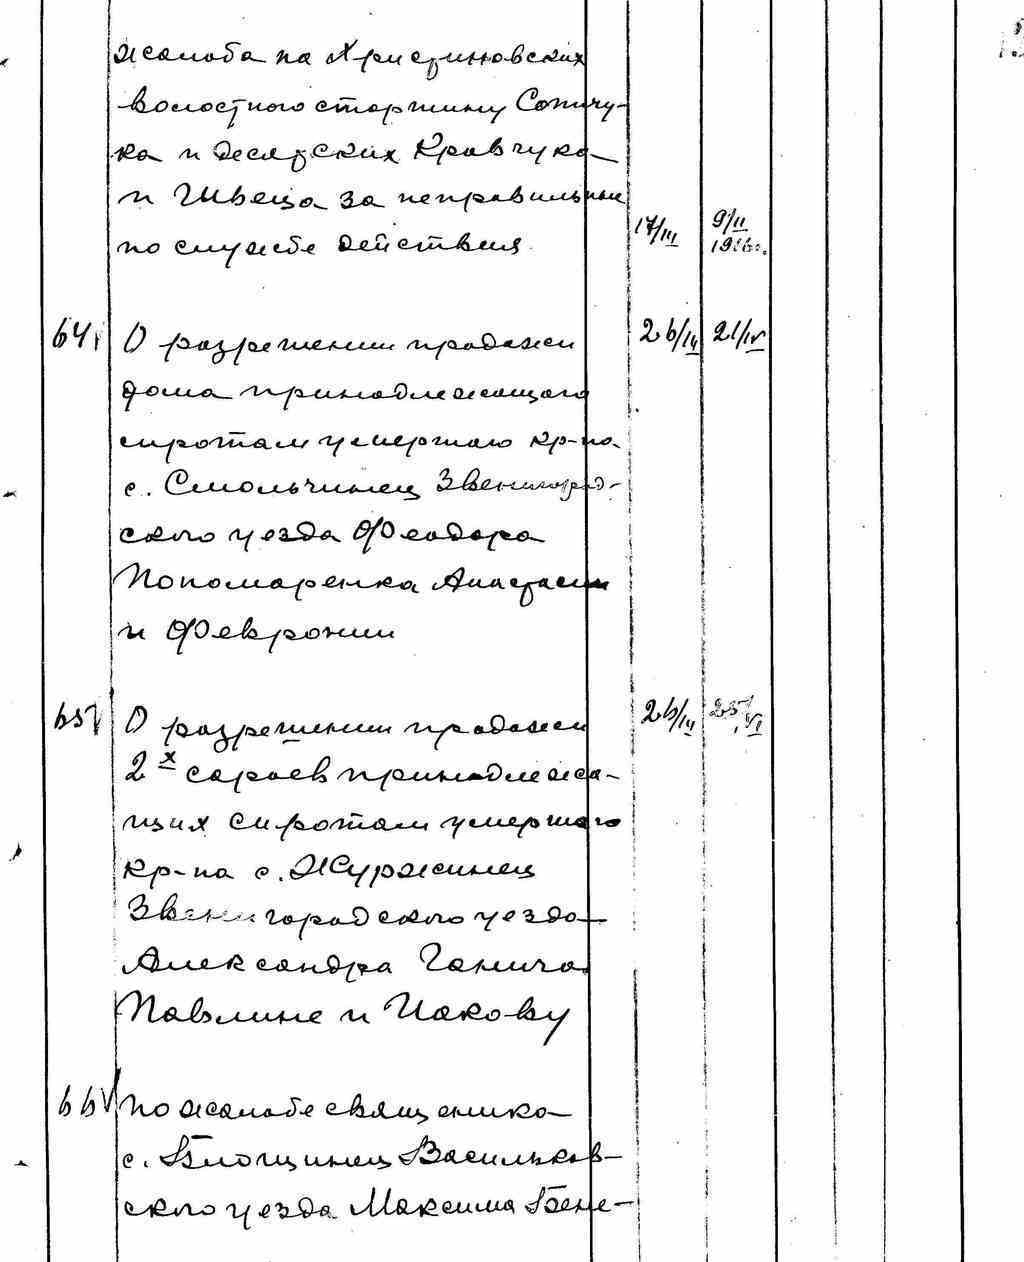 жалоба на Христиновских
волостного старшину Сопичу-
ка и десятских Кравчука
и Швеца за неправильные
по службе действия. 17/III 9/II 1916г.
64 О разрешении продажи 26/III 21/IV
дома принадлежащего
сиротам умершего кр-на
с. Смольчинец Звенигород-
ского уезда Феодора
Пономаренка Анастасии
и Февронии
65 О разрешении продажи 26/III 25/VI
2х сараев принадлежа-
щих сиротам умершего
кр-на с. Журжинец
Звенигородского уезда
Александра Ганича
Павлине и Иакову
66 по жалобе священника
с. Блощинец Васильков-
ского уезда Максима Бене-